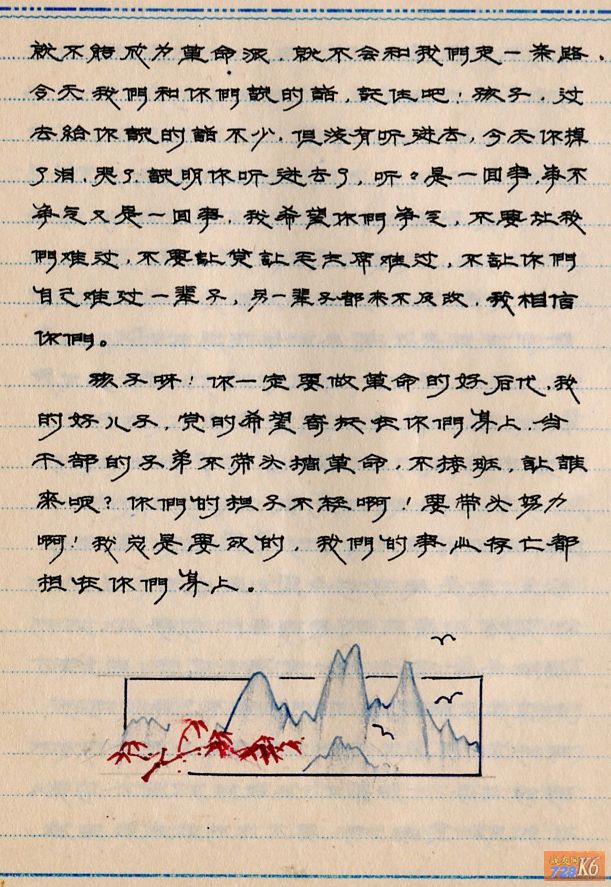 就不能成为革命派，就不会和我們走一条路。
今天我們和你們說的話，記住吧！孩子，过
去給你說的話不少，但沒有听进去，今天你掉
了泪，哭了，說明你听进去了，听。是一回事，争不
争气又是一回事，我希望你們争气，不要让我
們难过，不要让党让毛主席难过，不让你們
自己难过一輩子，另一輩子都来不及改，我相信
你們。
孩子呀！你一定要做革命的好后代，我
的好儿子，党的希望寄托在你們身上，当
干部的子弟不带头搞革命，不接班，让誰
來呢？你們的担子不轻啊！要带头努力
啊！我总是要死的，我們的事业存亡都
担在你們身上。
728
K6